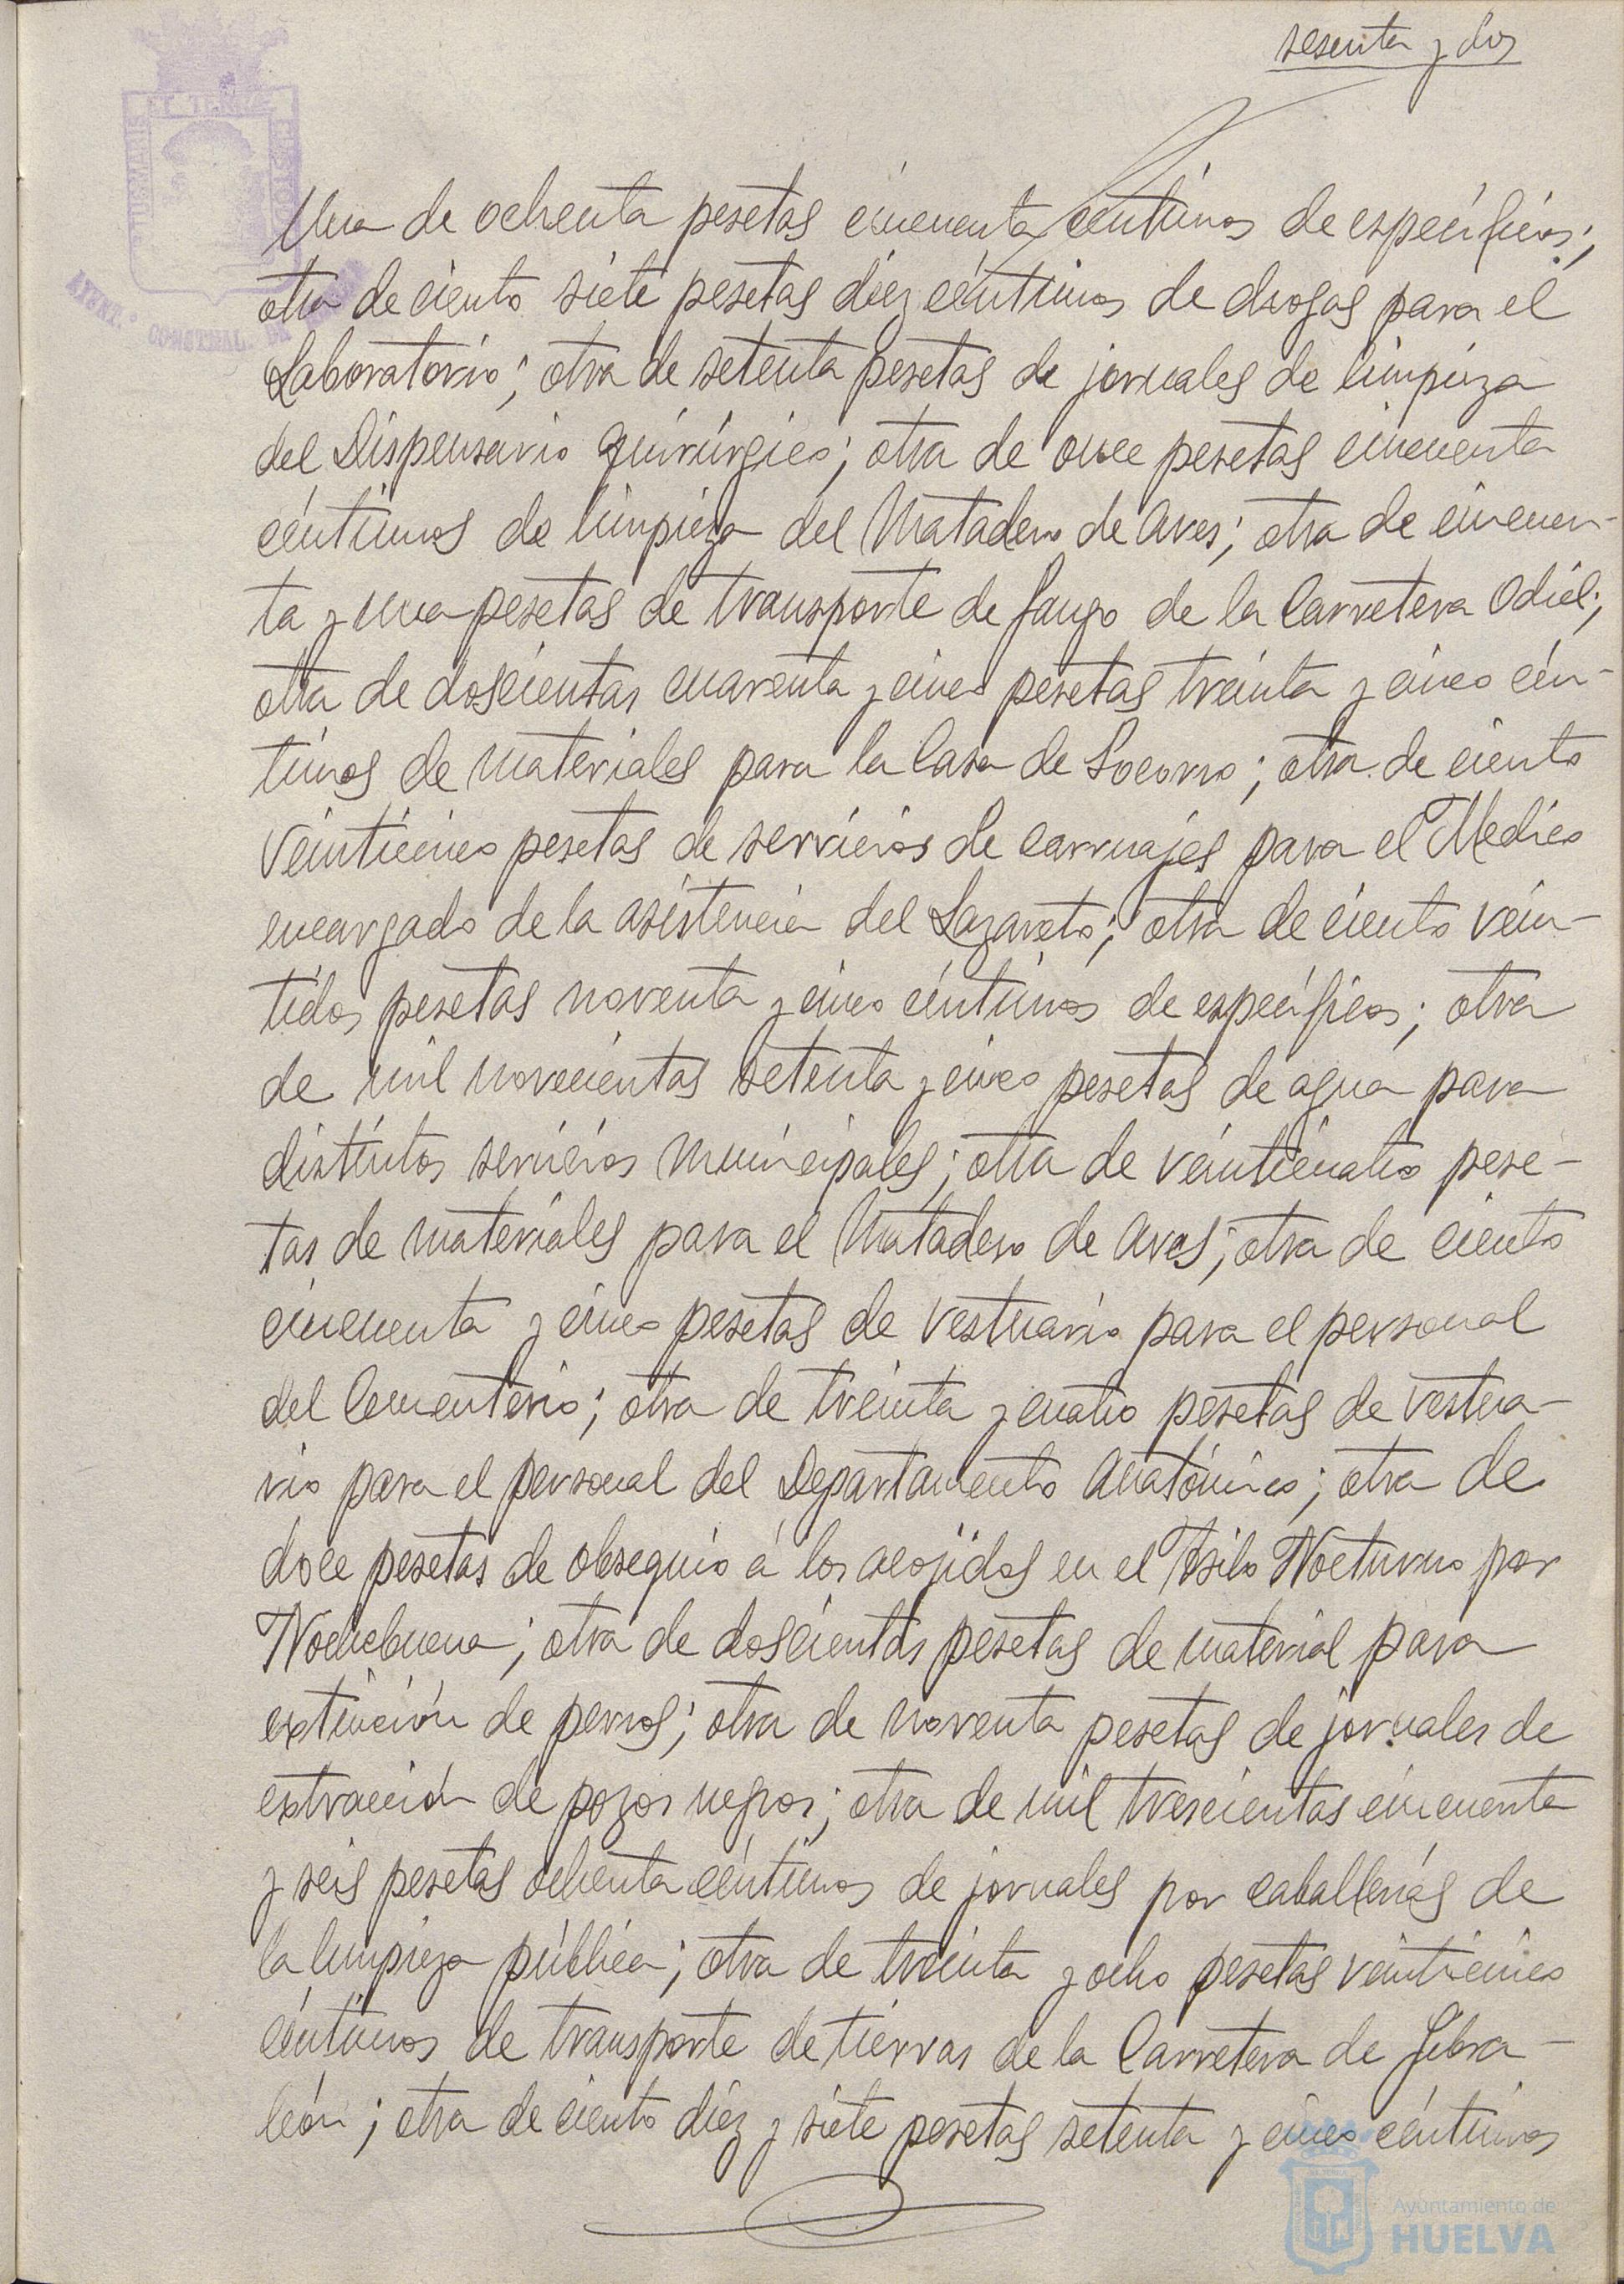 sesenta y dos
Una de ochenta pesetas cincuenta céntimos de específicos;
otra de ciento siete pesetas diez céntimos de drogas para el
Laboratorio; otra de setenta pesetas de jornales de limpieza
del Dispensario quirúrgico; otra de once pesetas cincuenta
céntimos de limpieza del Matadero de Aves; otra de cincuen-
ta y una pesetas de transporte de fango de la Carretera Odiel;
otra de doscientas cuarenta y cinco pesetas treinta y cinco cén-
timos de materiales para la Casa de Socorro; otra de ciento
veinticinco pesetas de servicios de carruajes para el Medico
encargado de la asistencia del Lazareto; otra de ciento vein-
tidos pesetas noventa y cinco céntimos de específicos; otra
de mil novecientas setenta y cinco pesetas de agua para
distintos servicios municipales; otra de veinticuatro pese-
tas de materiales para el Matadero de Aves; otra de ciento
cincuenta y cinco pesetas de vestuario para el personal
del Cementerio; otra de treinta y cuatro pesetas de vestua-
rio para el personal del Departamento Anatómico; otra de
doce pesetas de obsequio á los acojidos en el Asilo Nocturno por
Nochebuena; otra de doscientas pesetas de material para
extinción de perros; otra de noventa pesetas de jornales de
extracción de pozos negros; otra de mil trescientas cincuenta
y seis pesetas ochenta céntimos de jornales por caballerías de
la limpieza pública; otra de treinta y ocho pesetas veinticinco
céntimos de transporte de tierras de la Carretera de Gibra-
león; otra de ciento diez y siete pesetas setenta y cinco céntimos
AYUNT.º CONSTNAL. DE
Ayuntamiento de
HUELVA